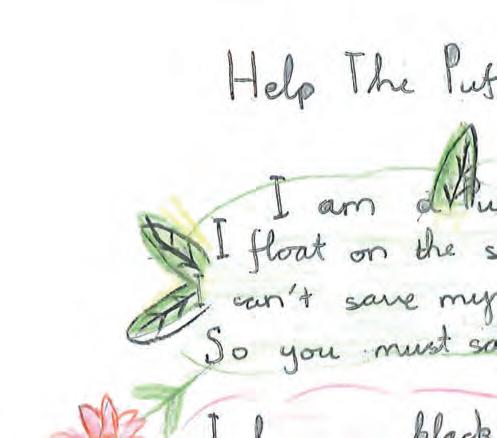 Help The Puf
I am a Pu
I float on the s
I can't save my
So you must sa
I h black